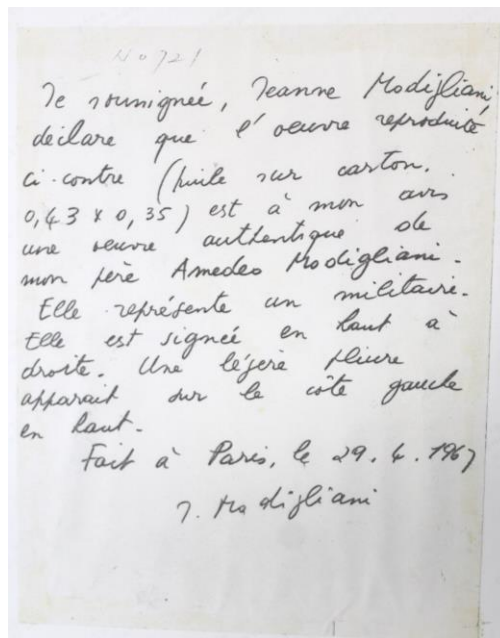 No 721
Je soussignée, Jeanne Modigliani,
déclare que l'oeuvre reproduite
ci-contre (huile sur carton.
0,43 x 0,35) est à mon avis
une oeuvre authentique de
mon père Amedeo Modigliani.
Elle représente un militaire.
Elle est signée en haut à
droite. Une légère pliure
apparait sur le côté gauche
en haut.
Fait à Paris, le 29.4.1967
J. Modigliani